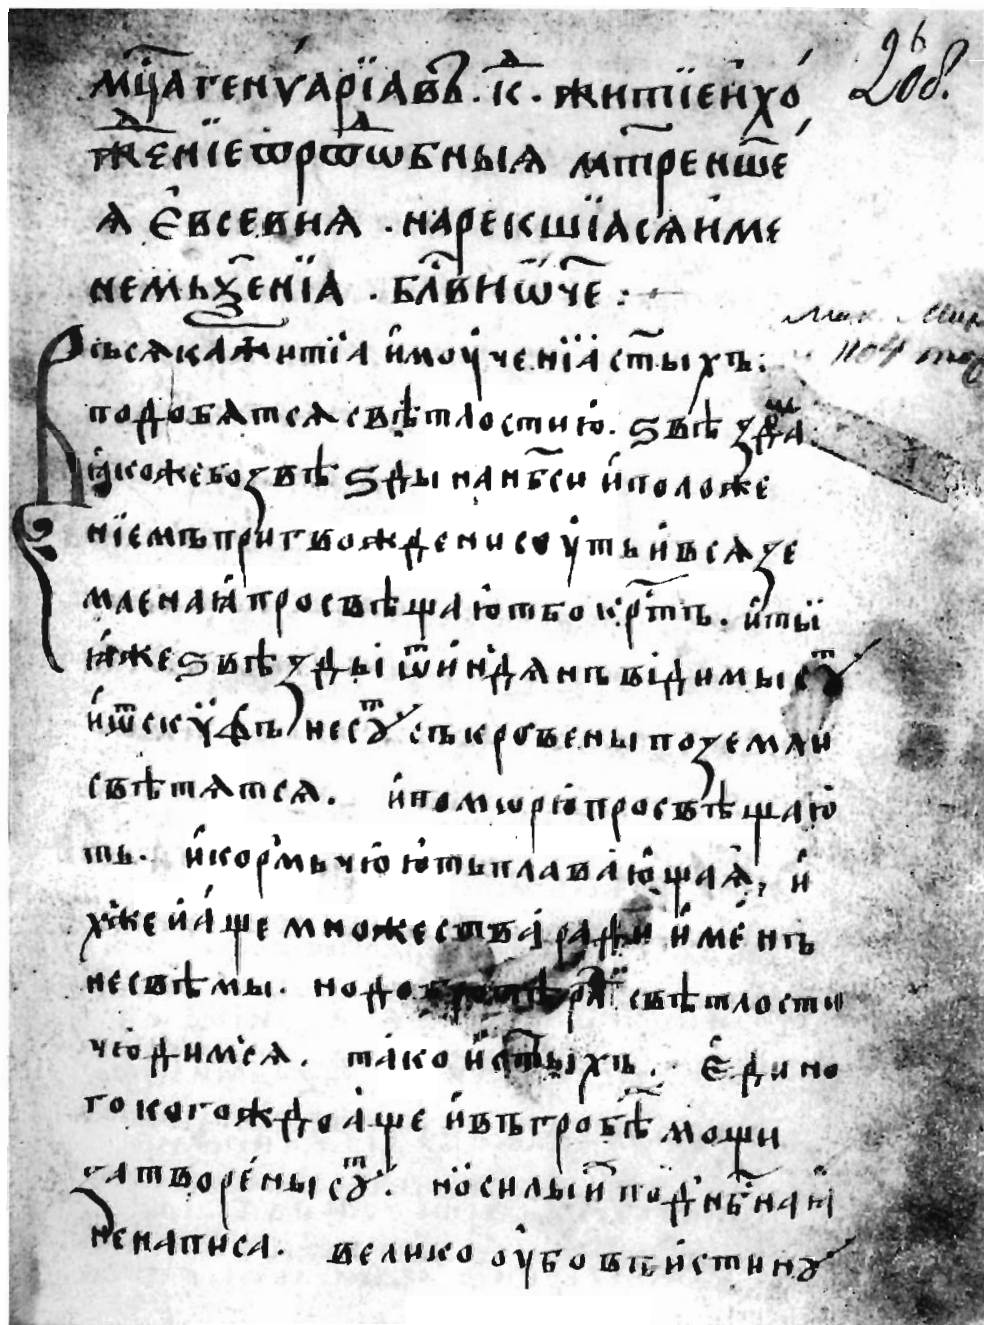 мц҃а генꙋарїа въ · к҃д · житїе и҆ хо
жⷣенїе ѿ рⷣѿѡбныꙗ мт҃ре нш҃е
ѧ є҆всевиꙗ · нарекшїасѧ и҆ме
немь ѯенїа · бл҃ви ѿч҃е :
Всѧка житїа и҆ моу҆ченїа ст҃ыхъ :
подобѧтсѧ свѣтлостию҆ · ѕвѣздаⷨ ·
ꙗ҆коже бо звѣѕды на нб҃си и҆ положе
нїемъ пригвождени соу҆ть и҆ всѧ зе
мленаꙗ҆ просвѣщаю҆т бо кр҃тъ · и҆ тыї
ꙗ҆же ѕвѣзды ѿ и҆ндѧнъ видимы сꙋⷮ
и҆ ѿ скѵ҆ѳъ не сꙋⷮ съкровены по земли
свѣтѧтсѧ · и҆ по морю҆ просвѣщаю҆
ть · и҆ кормьчюю҆ть плаваю҆щаѧ҆, и҆
хже и҆ а҆ще множества ради и҆ме҆нъ
не свѣмы · но свѣтлости
чю҆димсѧ · тако и҆ ст҃ыхъ · є҆дино
го когождо а҆ще и҆ въ гробѣ мощи
затворе҆ны сꙋⷮ · но҆ силы и҆ⷯ под нб҃наꙗ҆
не написа · велико оу҆бо въ и҆стинꙋ